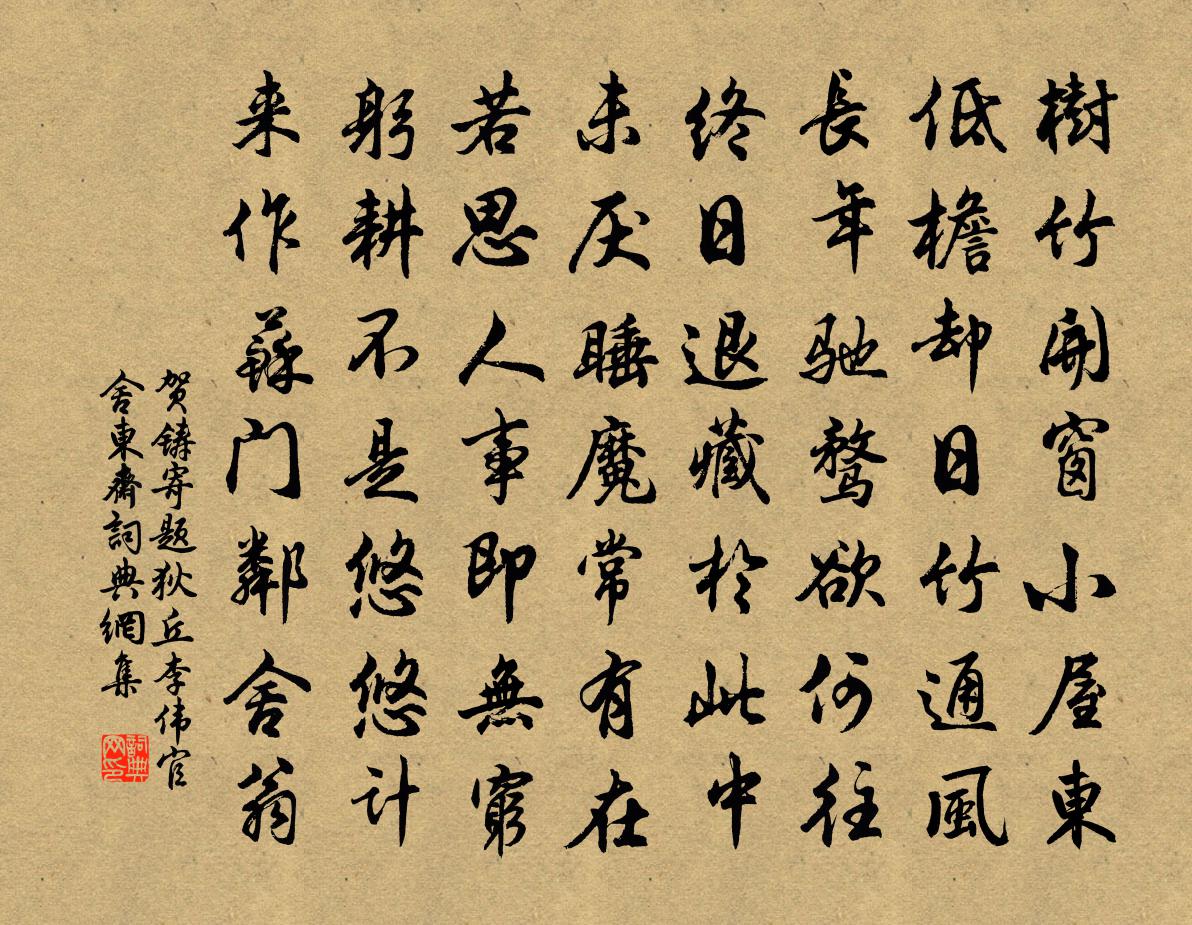 樹竹開窗小屋東
低檐却日竹通風
長年驰骛欲何往
终日退藏於此中
未厌睡魔常有在
若思人事即無窮
躬耕不是悠悠计
来作蘇门鄰舍翁
贺鑄寄题狄丘李伟官
舍東齋詞典網集
詞典
网印